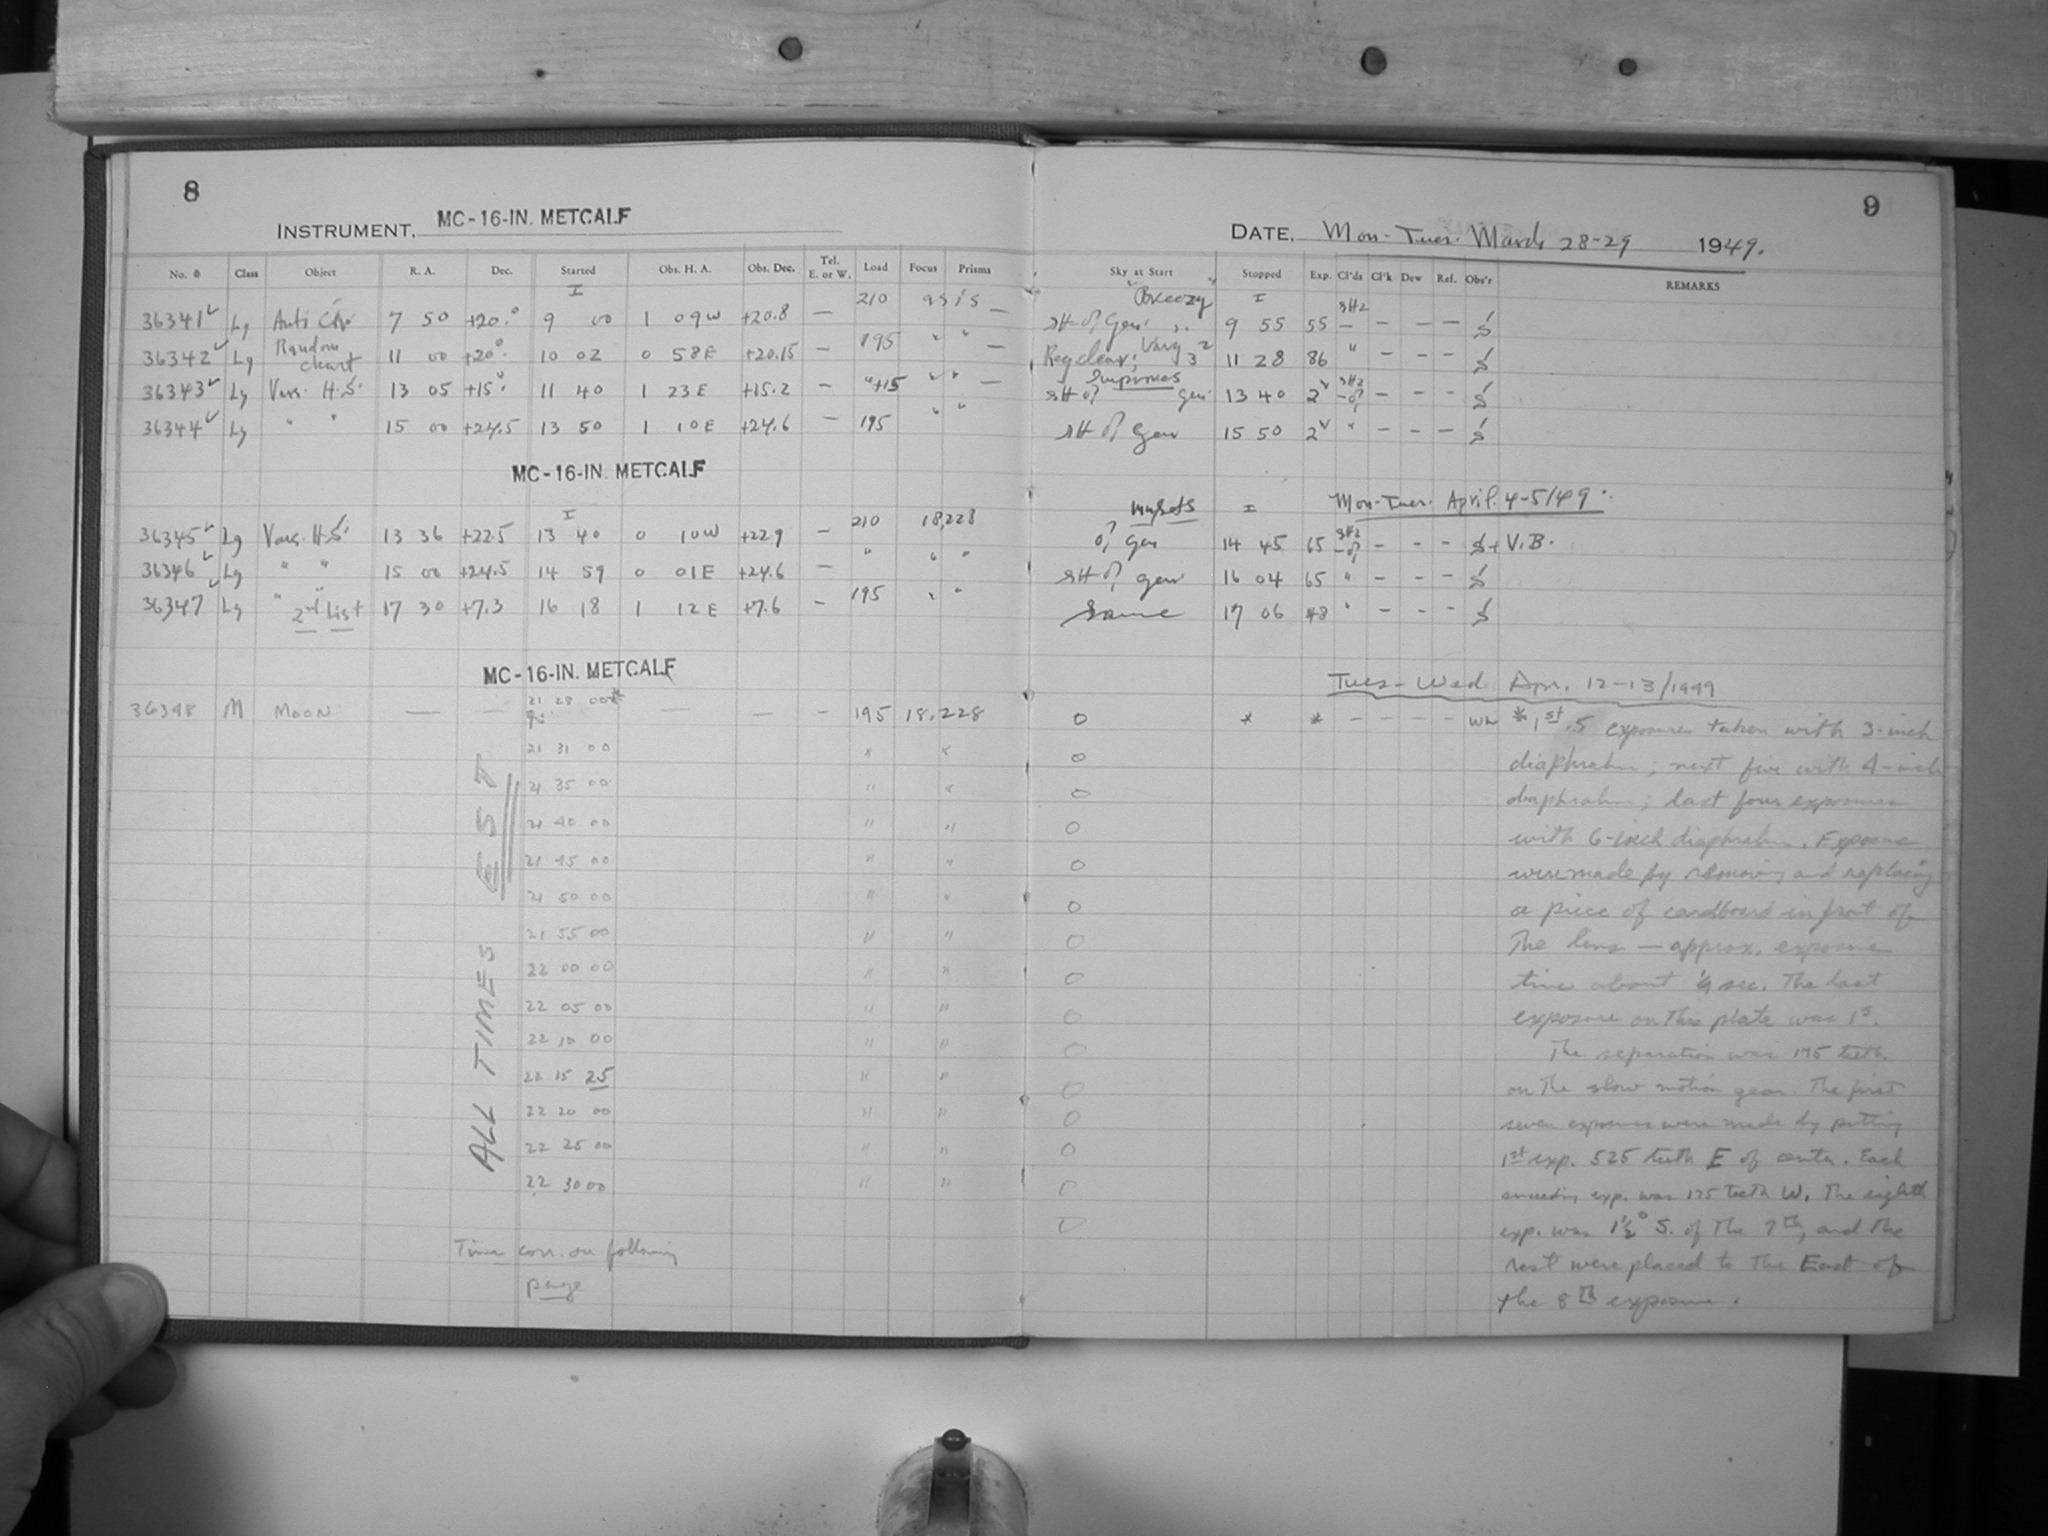 8
INSTRUMENT, MC-16-IN. METCALF
No. Class Object R. A. Dec. Started Obs. H. A. Obs. Dec. Tel. E. or W. Load Focus Prisms
36341 Lg Anti 7 50 +20.° 9 00 1 09W +20.8 — 210 as is —
36342 Lg Random chart 11 00 +20° 10 02 0 58E +20.15 — 195 " " —
36343 Lg Vars. H.S. 13 05 +15° 11 40 1 23E +15.2 — "+15 " " —
36344 Lg " " 15 00 +24.5 13 50 1 10E +24.6 — 195 " "
MC-16-IN. METCALF
36345 Lg Vars. H.S. 13 36 +22.5 13 40 0 10W +22.9 — 210 18,228
36346 Lg " " 15 00 +24.5 14 59 0 01E +24.6 — " " "
36347 Lg " " 2nd List 17 30 +7.3 16 18 1 12E +7.6 — 195 " "
MC-16-IN. METCALF
36348 M MOON — — 21 28 00* — — — 195 18,228
21 31 00 " "
21 35 00 " "
21 40 00 " "
21 45 00 " "
21 50 00 " "
21 55 00 " "
22 00 00 " "
22 05 00 " "
22 10 00 " "
22 15 25 " "
22 20 00 " "
22 25 00 " "
22 30 00 " "
ALL TIMES EST
Time corr. on following
page
9
DATE, Mon-Tues. March 28-29 1949.
Sky at Start Stopped Exp. Cl'ds Cl'k Dew Ref. Obs'r REMARKS
Breezy I
9 55 55 — — — — S
Reg clear, 11 28 86 " — — — S
Improves
13 40 2 — — — S
15 50 2 " — — — S
Mon-Tues. April. 4-5/49
gen 14 45 65 — — — S + V.B.
gen 16 04 65 " — — — S
Same 17 06 48 " — — — S
Tues-Wed Apr. 12-13/1949
0 * * — — — — * 1st. 5 exposures taken with 3-inch
0 diaphrahm; next five with 4-inch
0 diaphrahm; last four exposures
0 with 6-inch diaphrahm. Exposure
0 were made by removing and replacing
0 a piece of cardboard in front of
0 the lens — approx. exposure
0 time about ¼ sec. The last
0 exposure on this plate was 1s.
0 The separation was 175 teeth
0 on the slow motion gear. The first
0 seven exposures were made by putting
0 1st exp. 525 teeth E of center. Each
0 succeeding exp. was 175 teeth W. The eighth
0 exp. was 1½° S. of the 7th, and the
rest were placed to the East of
the 8th exposure.